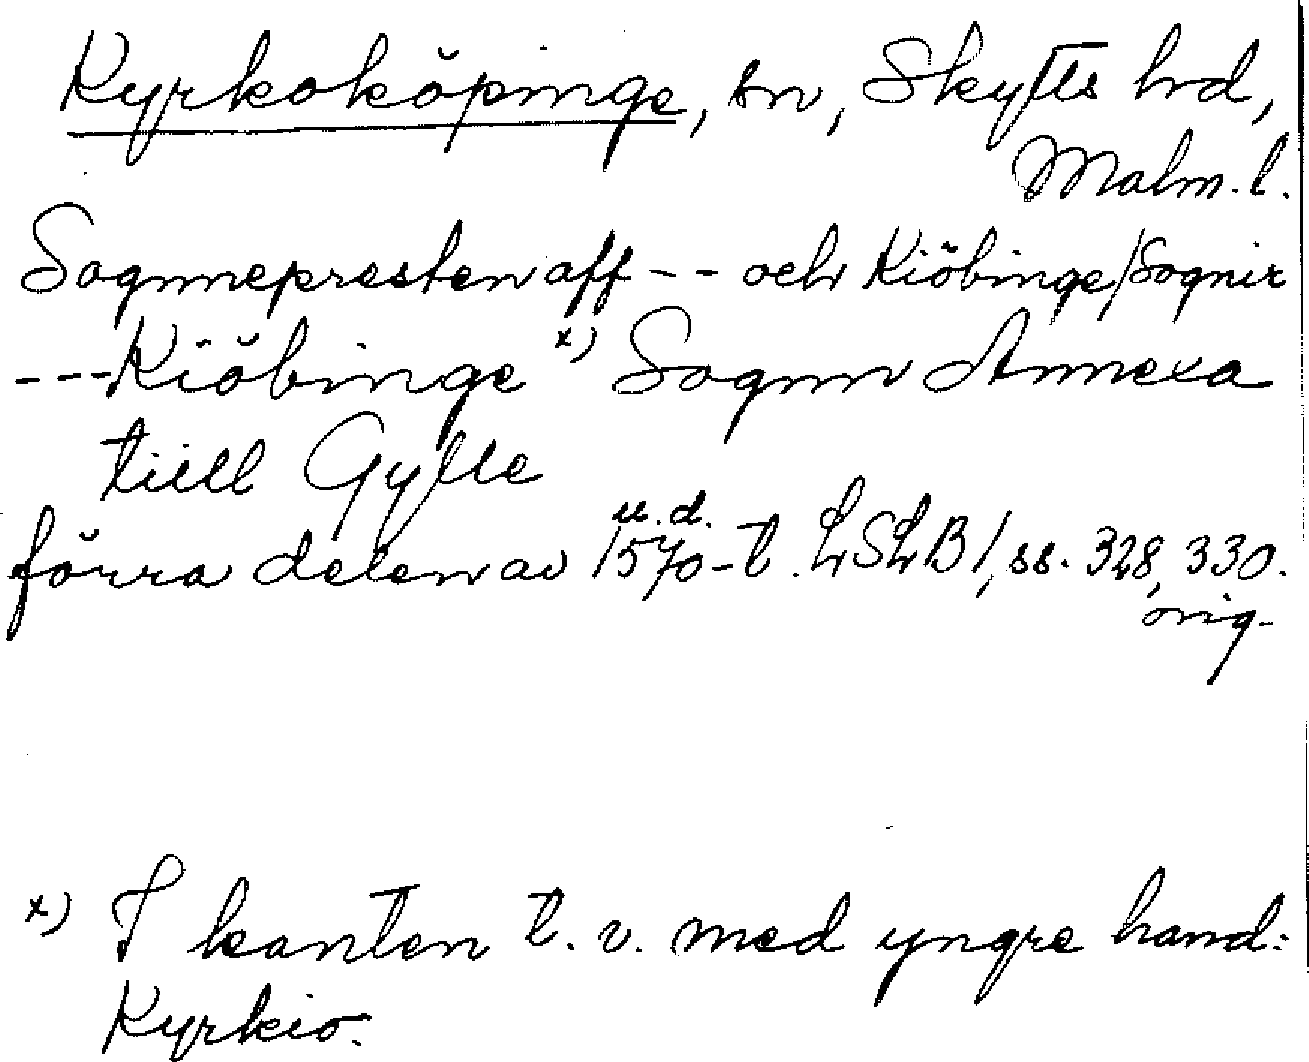 Kyrkoköpinge, sn, Skytts hd,
Malm. l.
Sognnepresten aff -- och Kiöbinge / Sognir
---Kiöbinge x) Sognn Annexa
till Gylle
u. d.
förra delen av 1570-t. LSLB 1, ss. 328, 330.
orig.
x) I kanten t. v. med yngre hand:
Kyrkio.